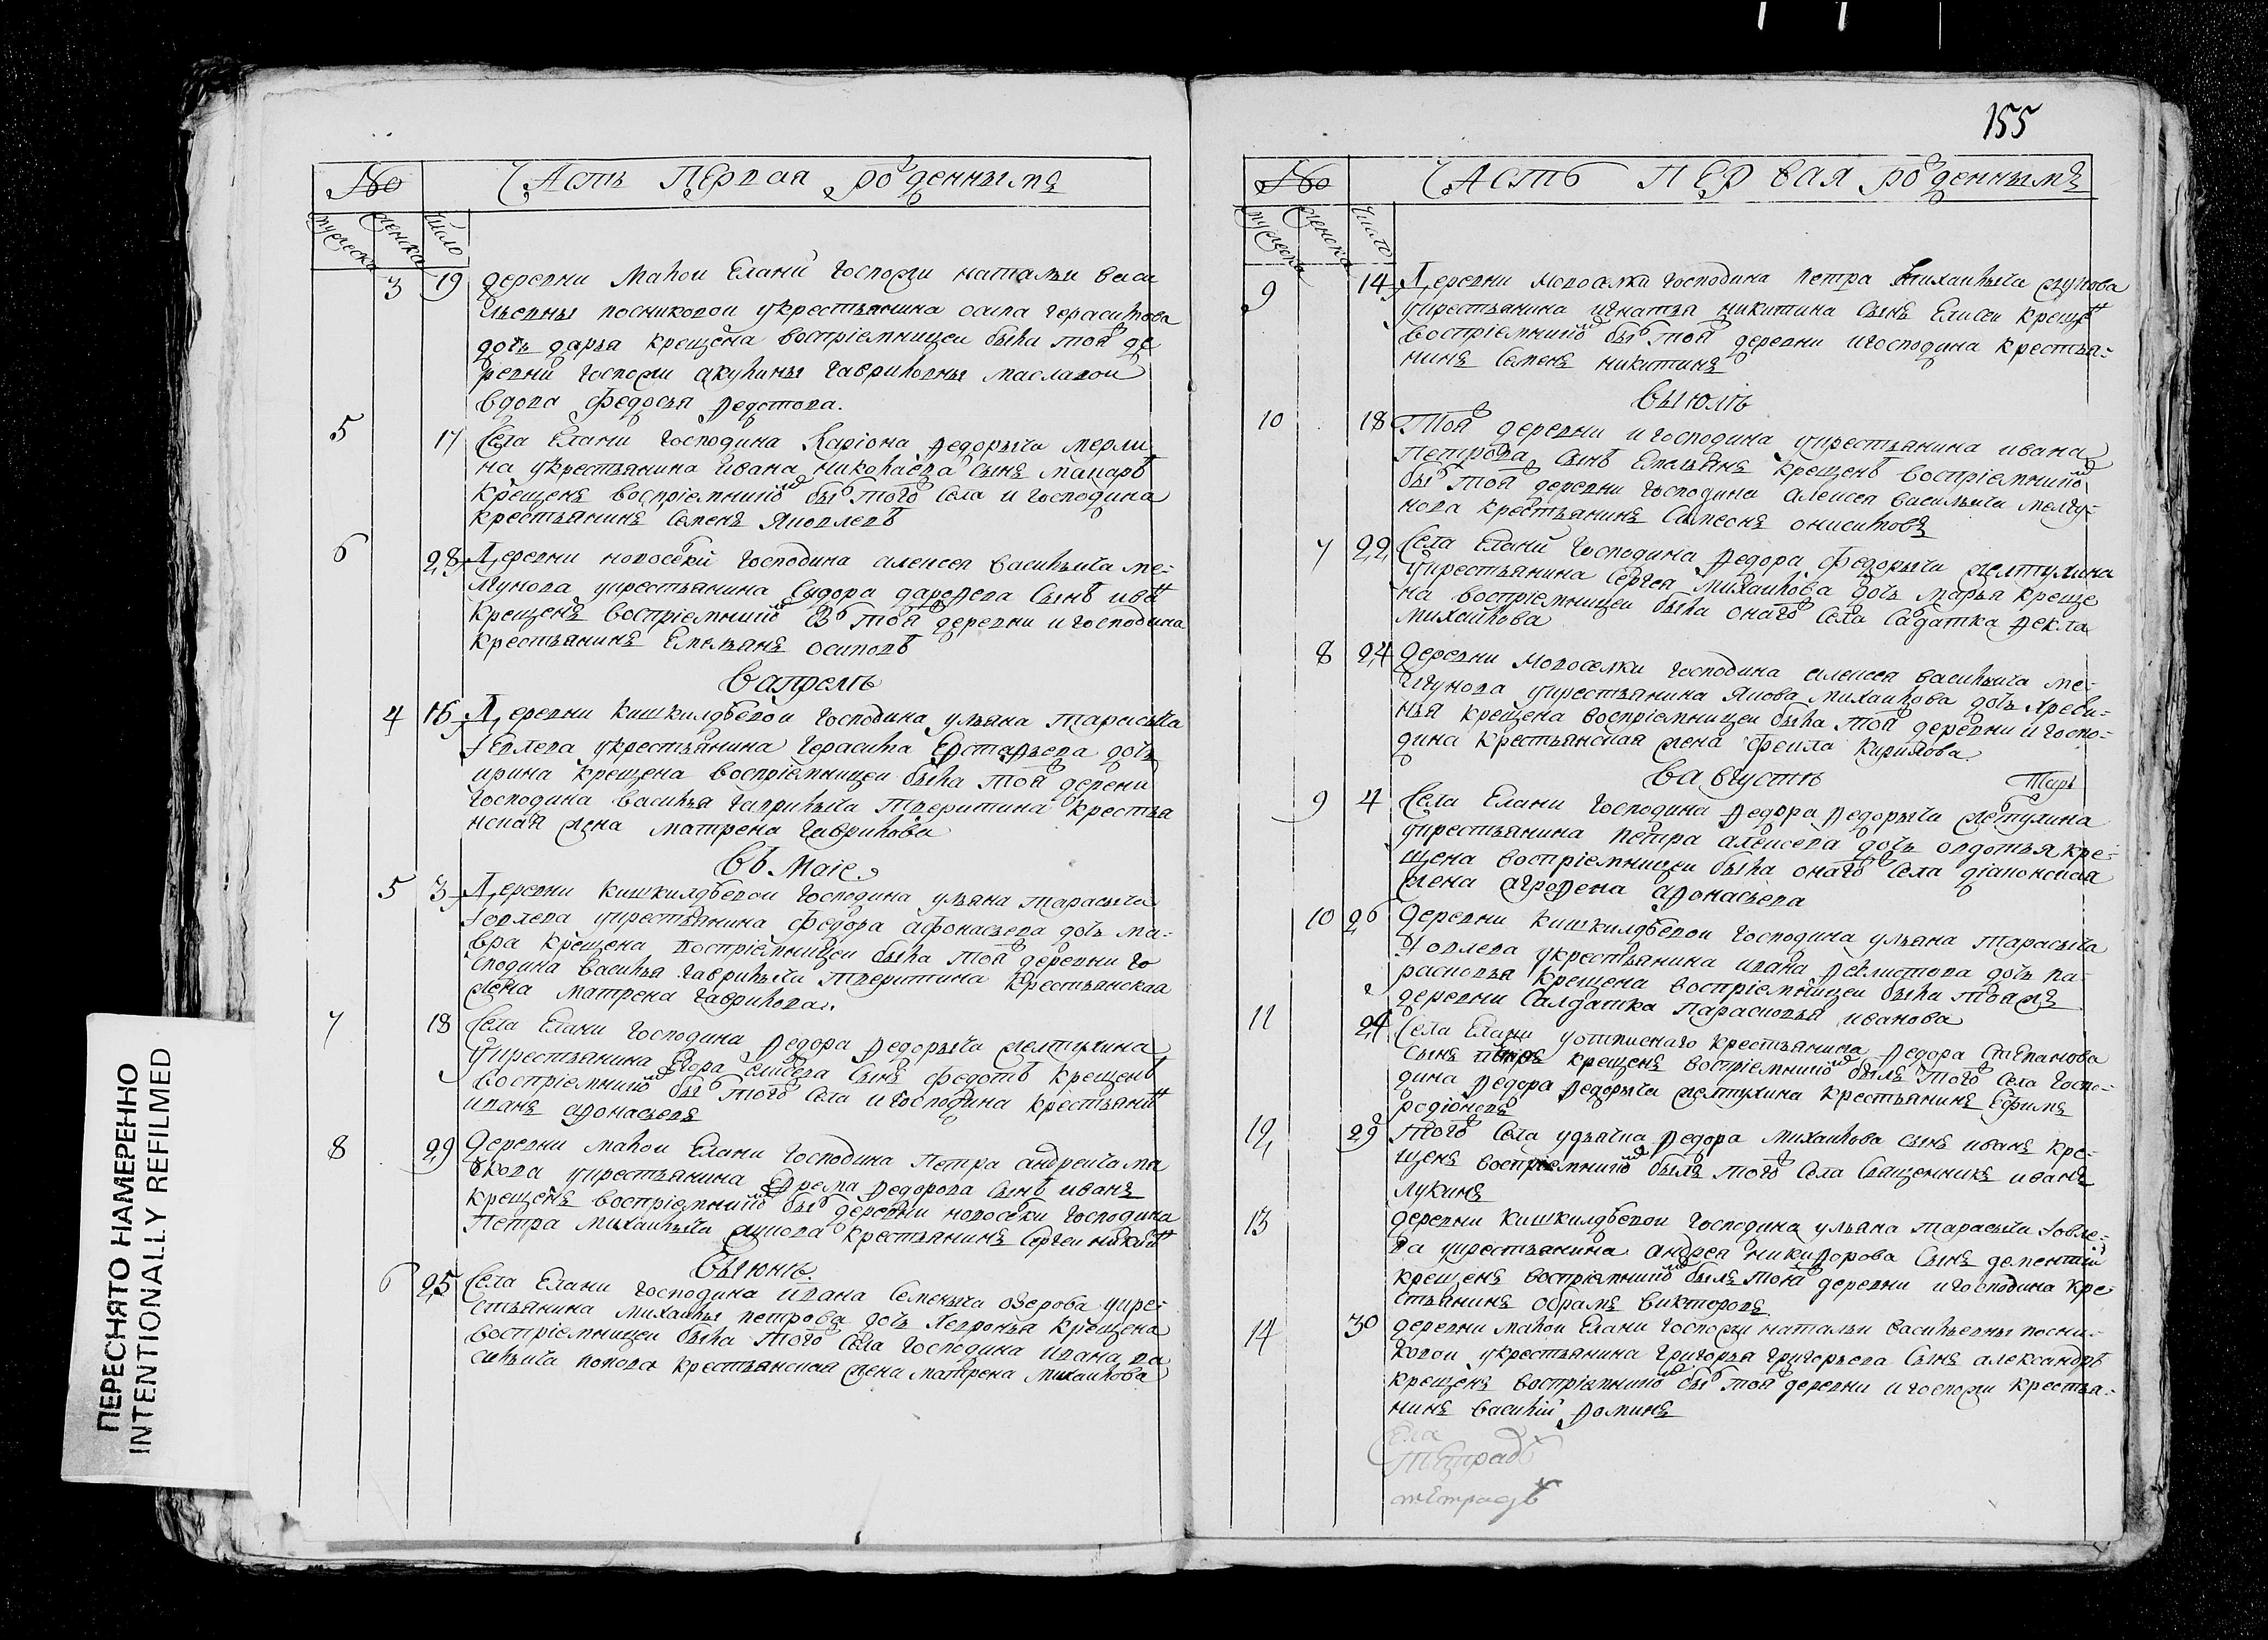 155
№ Часть первая роденнымъ
мужеска женска число
3 19 деревни малои Елани госпожи натальи васи
льевны посниковои укрестьянина осипа герасимова
дочь дарья крещена восприемницеи была тои де
ревни госпожи акулины гавриловны масловои
вдова федосья
5 17 села Елани господина Лариона федорыча мерли
на укрестьянина ивана николаева сынъ макаръ
крещенъ восприемникомъ былъ того села и господина
крестьянинъ семенъ яковлевъ
6 28 Деревни новоселки господина алексея васильича ме-
лгунова укрестьянина сидора сынъ иванъ
крещенъ восприемникомъ тои деревни и господина
крестьянинъ емельянъ осиповъ
в апреле
4 16 Деревни кишкилдѣевои господина ульяна тарасыча
укрестьянина герасима евстафьева дочь
ирина крещена восприемницеи была тои деревни
господина василья гаврилыча тверитина крестья
нская жена матрена гаврилова
въ маіе
5 3 Деревни кишкилдѣевои господина ульяна тарасыча
укрестьянина федора афонасьева дочь ма-
вра крещена восприемницеи была тои деревни го
сподина василья гаврилыча тверитина крестьянская
жена матрена гаврилова
7 18 села Елани господина федора федорыча желтухина
укрестьянина сынъ федотъ крещенъ
восприемникомъ былъ того села и господина крестьянинъ
иванъ афонасьевъ
8 29 деревни малои Елани господина петра андреича
укрестьянина ефрема федорова сынъ иванъ
крещенъ восприемникомъ былъ деревни новоселки господина
петра михаилыча крестьянинъ сергеи никит
въ июне
6 25 села Елани господина ивана семеныча озерова укре-
стьянина михаилы петрова дочь хевронья крещена
восприемницеи была того села господина ивана ва
сильича попова крестьянская жена матрена михаилова
№ Часть первая роденнымъ
мужеска женска число
9 14 Деревни новоселки господина петра михаилыча
укрестьянина игнатья никитина сынъ елисеи крещенъ
восприемникомъ былъ тои деревни и господина крестья-
нинъ семенъ никитинъ
въ июле
10 18 Тои деревни и господина укрестьянина ивана
петрова сынъ емельянъ крещенъ восприемникомъ
былъ тои деревни господина алексея васильича мелгу-
нова крестьянинъ самсонъ онисимовъ
7 22 села Елани господина федора федорыча желтухина
укрестьянина сергея михаилова дочь марья креще
на восприемницеи была онаго села салдатка фекла
михаилова
8 24 деревни новоселки господина алексея васильича ме-
лгунова укрестьянина якова михаилова дочь
крещена восприемницеи была тои деревни и госпо-
дина крестьянская жена кирилова
в августе
9 4 села Елани господина федора федорыча желтухина
укрестьянина петра алексеева дочь овдотья кре-
щена восприемницеи была онаго села діаконская
жена агрофена афонасьева
10 26 деревни кишкилдѣевои господина ульяна тарасыча
укрестьянина ивана дочь па-
расковья крещена восприемницеи была тоя жъ
деревни салдатка парасковья иванова
11 24 села Елани крестьянина федора степанова
сынъ крещенъ восприемникомъ былъ того села госпо-
дина федора федорыча желтухина крестьянинъ ефимъ
родіоновъ
12 29 того села удьячка федора михаилова сынъ иванъ кре-
щенъ восприемникомъ былъ того села священникъ иванъ
лукинъ
13 деревни кишкилдѣевои господина ульяна тарасыча
укрестьянина андрея никифорова сынъ дементии
крещенъ восприемникомъ былъ тои деревни и господина кре
стьянинъ обрамъ викторовъ
14 30 деревни малои Елани госпожи натальи васильевны посни-
ковои укрестьянина григорья григорьева сынъ александръ
крещенъ восприемникомъ былъ тои деревни и госпожи крестья-
нинъ василии фоминъ
тетрадь
тетрадь
ПЕРЕСНЯТО НАМЕРЕННО
INTENTIONALLY REFILMED